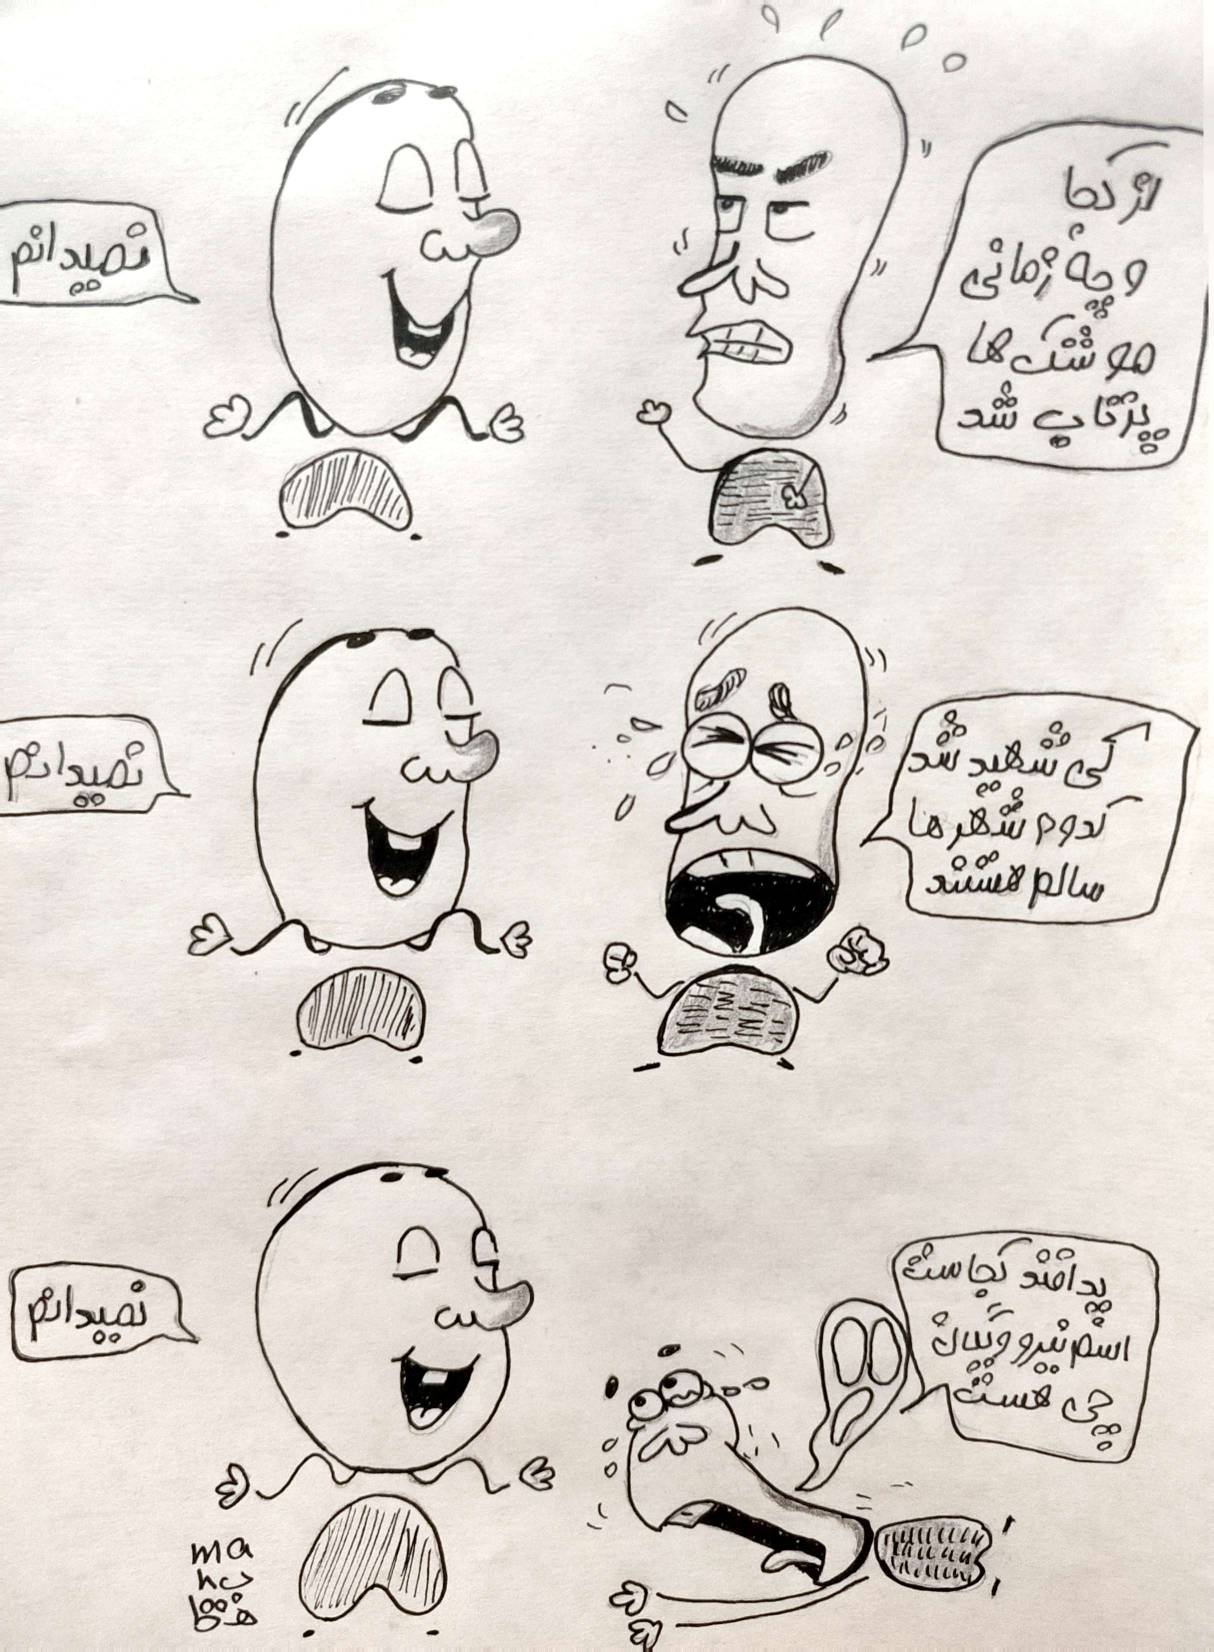 از کجا
و چه زمانی
موشک ها
پرتاب شد
نمیدانم
کی شهید شد
کدوم شهر ها
سالم هستند
نمیدانم
پدافند کجاست
اسم نیرو و تیپان
چی هست
نمیدانم
ma